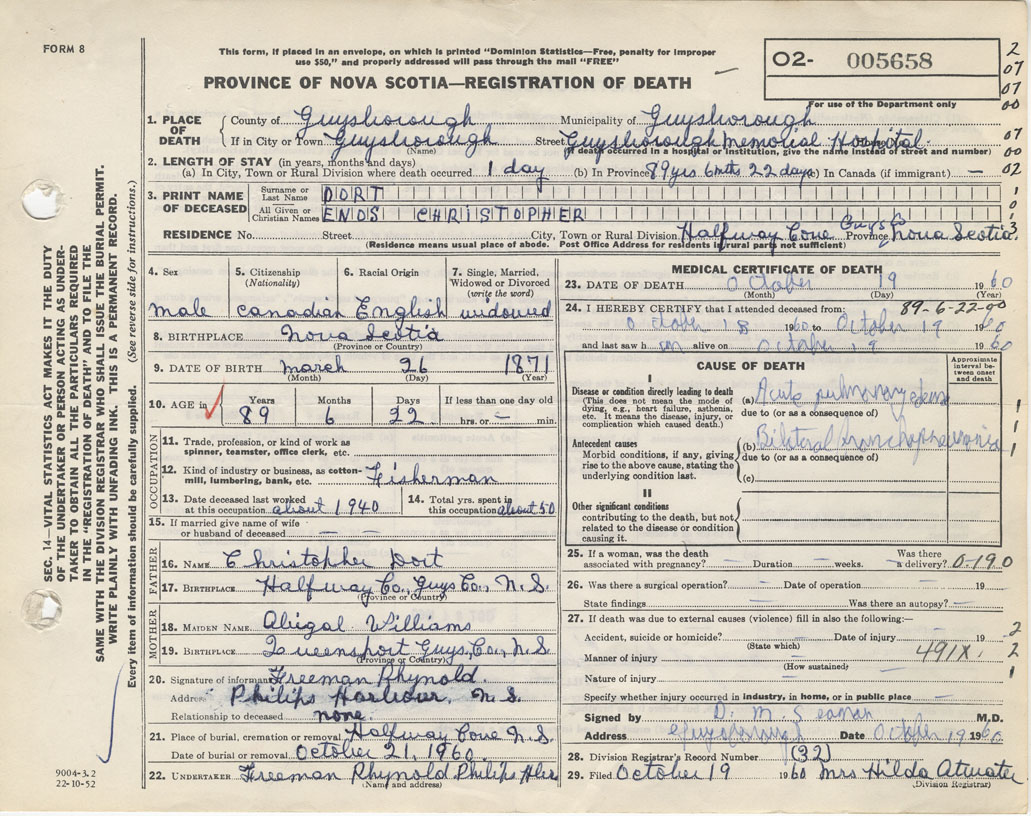 FORM 8
This form, if placed in an envelope, on which is printed "Dominion Statistics—Free, penalty for improper
use $50," and properly addressed will pass through the mail "FREE"
PROVINCE OF NOVA SCOTIA—REGISTRATION OF DEATH
O2- 005658
For use of the Department only
2
07
07
00
07
00
02
SEC. 14—VITAL STATISTICS ACT MAKES IT THE DUTY
OF THE UNDERTAKER OR PERSON ACTING AS UNDER-
TAKER TO OBTAIN ALL THE PARTICULARS REQUIRED
IN THE "REGISTRATION OF DEATH" AND TO FILE THE
SAME WITH THE DIVISION REGISTRAR WHO SHALL ISSUE THE BURIAL PERMIT.
WRITE PLAINLY WITH UNFADING INK. THIS IS A PERMANENT RECORD.
Every item of information should be carefully supplied. (See reverse side for instructions.)
1. PLACE OF DEATH County of Guysborough Municipality of Guysborough
If in City or Town Guysborough Street Guysborough Memorial Hospital
(Name) (If death occurred in a hospital or institution, give the name instead of street and number)
2. LENGTH OF STAY (in years, months and days)
(a) In City, Town or Rural Division where death occurred 1 day (b) In Province 89 yrs. 6 mths 22 days (c) In Canada (if immigrant) —
3. PRINT NAME OF DECEASED Surname or Last Name DORT
All Given or Christian Names ENOS CHRISTOPHER
RESIDENCE No. Street City, Town or Rural Division Halfway Cove Guys Co Province Nova Scotia
(Residence means usual place of abode. Post Office Address for residents in rural parts not sufficient)
4. Sex 5. Citizenship (Nationality) 6. Racial Origin 7. Single, Married, Widowed or Divorced (write the word)
male Canadian English widowed
8. BIRTHPLACE Nova Scotia
(Province or Country)
9. DATE OF BIRTH March 26 1871
(Month) (Day) (Year)
10. AGE in Years Months Days If less than one day old
89 6 22 hrs. or — min.
OCCUPATION
11. Trade, profession, or kind of work as
spinner, teamster, office clerk, etc.
12. Kind of industry or business, as cotton-
mill, lumbering, bank, etc. Fisherman
13. Date deceased last worked
at this occupation about 1940
14. Total yrs. spent in
this occupation about 50
15. If married give name of wife
or husband of deceased —
FATHER
16. NAME Christopher Dort
17. BIRTHPLACE Halfway Co., Guys Co., N.S.
(Province or Country)
MOTHER
18. MAIDEN NAME Abigal Williams
19. BIRTHPLACE Queensport Guys, Co., N.S.
(Province or Country)
20. Signature of informant Freeman Rhynold.
Address Philips Harbour, N.S.
Relationship to deceased none.
21. Place of burial, cremation or removal Halfway Cove N.S.
Date of burial or removal October 21, 1960
22. UNDERTAKER Freeman Rhynold Philips Hbr
(Name and address)
9004-3.2
22-10-52
MEDICAL CERTIFICATE OF DEATH
23. DATE OF DEATH October 19 1960
(Month) (Day) (Year)
24. I HEREBY CERTIFY that I attended deceased from: 89-6-22-00
October 18 1960 to October 19 1960
and last saw him alive on October 19 1960
CAUSE OF DEATH
Approximate interval between onset and death
I
Disease or condition directly leading to death
(This does not mean the mode of
dying, e.g., heart failure, asthenia,
etc. It means the disease, injury, or
complication which caused death.)
(a) Acute pulmonary edema
due to (or as a consequence of)
Antecedent causes
Morbid conditions, if any, giving
rise to the above cause, stating the
underlying condition last.
(b) Bilateral bronchopneumonia
due to (or as a consequence of)
(c)
II
Other significant conditions
contributing to the death, but not
related to the disease or condition
causing it.
25. If a woman, was the death
associated with pregnancy? — Duration — weeks. Was there
a delivery? 0.190
26. Was there a surgical operation? — Date of operation — 19
State findings — Was there an autopsy? —
27. If death was due to external causes (violence) fill in also the following:—
Accident, suicide or homicide? — Date of injury — 19
(State which)
Manner of injury — 491X
(How sustained)
Nature of injury —
Specify whether injury occurred in industry, in home, or in public place —
Signed by D. M. Seaman M.D.
Address Guysborough Date October 19 1960
28. Division Registrar's Record Number (32)
29. Filed October 19 1960 Mrs Hilda Atwater
(Division Registrar)